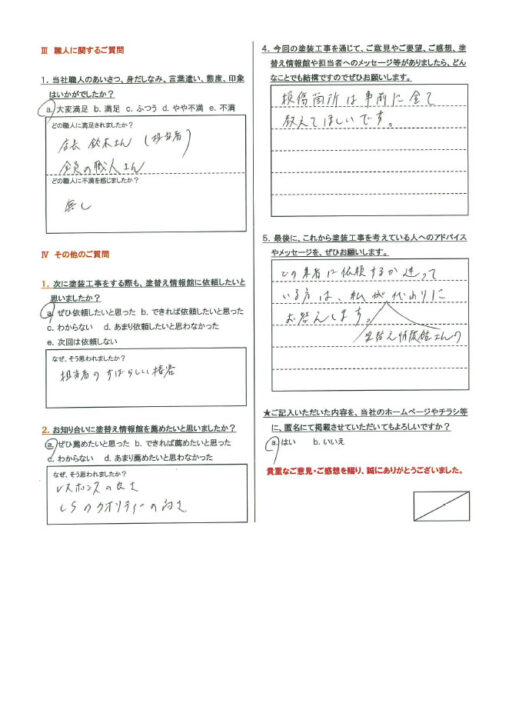 Ⅲ 職人に関するご質問
1. 当社職人のあいさつ、身だしなみ、言葉遣い、態度、印象
はいかがでしたか?
a. 大変満足 b. 満足 c. ふつう d. やや不満 e. 不満
どの職人に満足されましたか?
店長 鈴木さん (担当者)
全員の職人さん
どの職人に不満を感じましたか?
無し
Ⅳ その他のご質問
1. 次に塗装工事をする際も、塗替え情報館に依頼したいと
思いましたか?
a. ぜひ依頼したいと思った b. できれば依頼したいと思った
c. わからない d. あまり依頼したいと思わなかった
e. 次回は依頼しない
なぜ、そう思われましたか?
担当者のすばらしい接客
2. お知り合いに塗替え情報館を薦めたいと思いましたか?
a. ぜひ薦めたいと思った b. できれば薦めたいと思った
c. わからない d. あまり薦めたいと思わなかった
なぜ、そう思われましたか?
レスポンスの良さ
LSのクオリティーの高さ
4. 今回の塗装工事を通じて、ご意見やご要望、ご感想、塗
替え情報館や担当者へのメッセージ等がありましたら、どん
なことでも結構ですのでぜひお願いします。
損傷箇所は事前に全て
教えてほしいです。
5. 最後に、これから塗装工事を考えている人へのアドバイス
やメッセージを、ぜひお願いします。
どの業者に依頼するか迷って
いる方は、私が代わりに
お答えします。
塗替え情報館さんの
★ご記入いただいた内容を、当社のホームページやチラシ等
に、匿名にて掲載させていただいてもよろしいですか?
a. はい b. いいえ
貴重なご意見・ご感想を賜り、誠にありがとうございました。